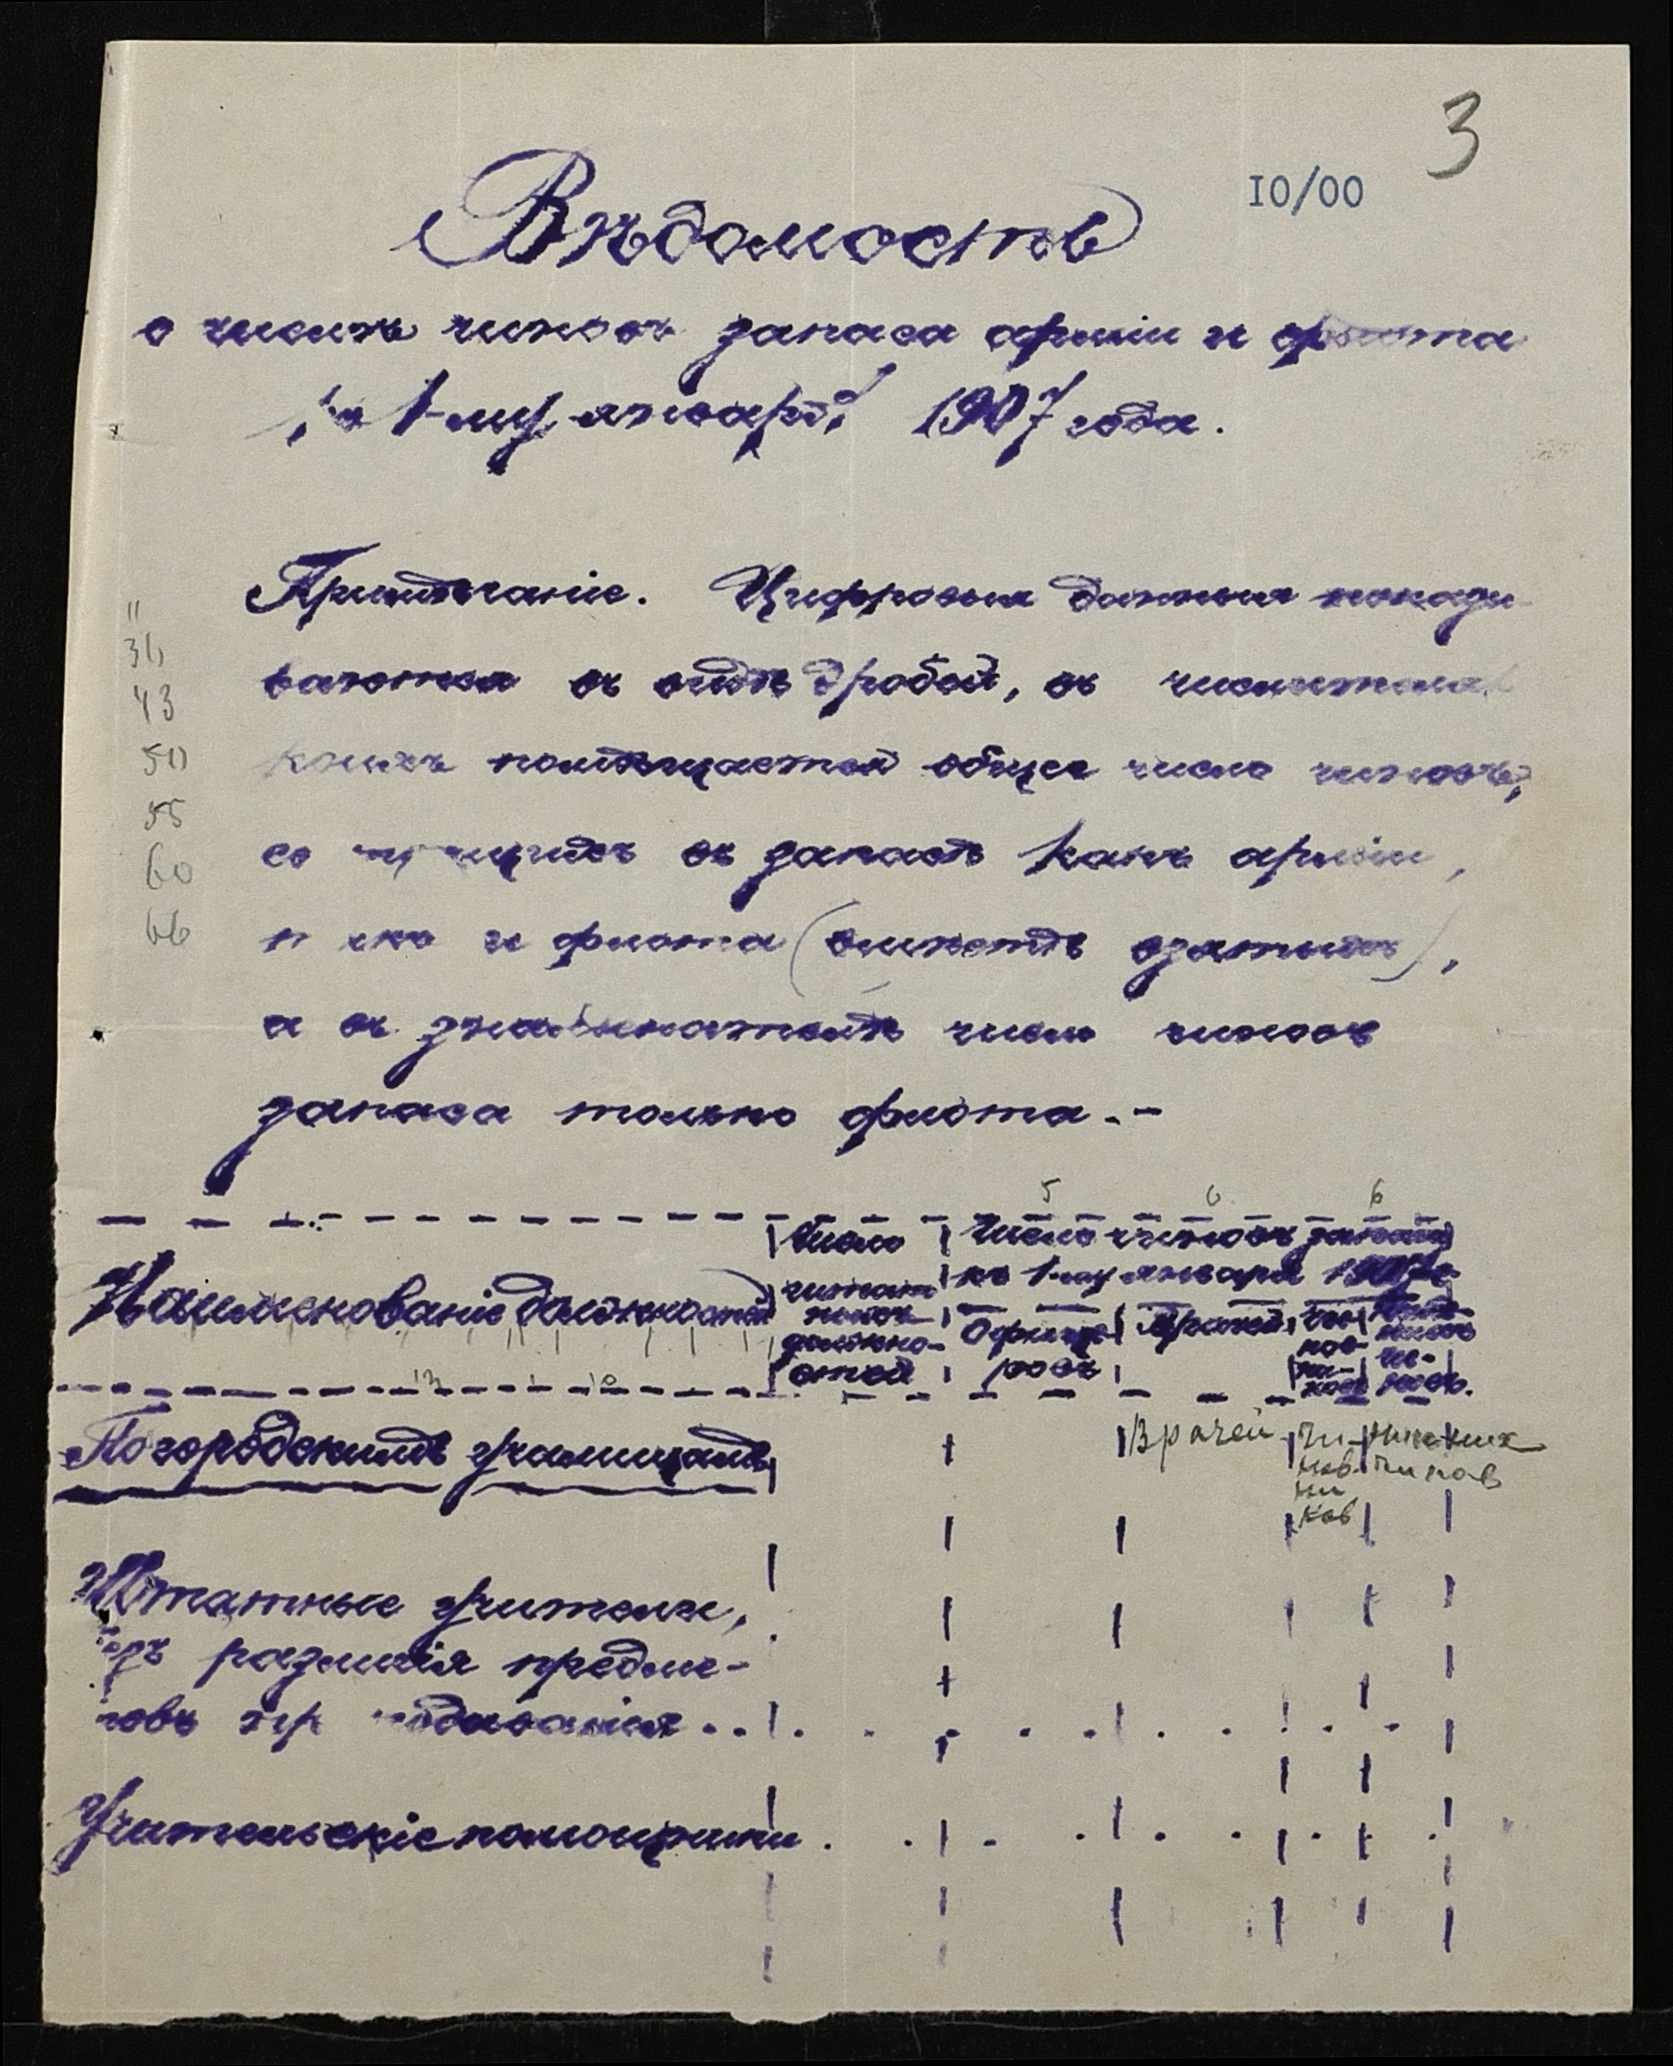 3
10/00
Вѣдомость
о числѣ чиновъ запаса арміи и флота
къ 1-му января 1907 года.
Примѣчаніе. Цифровыя данныя показы-
ваются въ видѣ дробей, въ числителѣ
коихъ помѣщается общее число чиновъ,
состоящихъ въ запасѣ какъ арміи,
такъ и флота (вмѣстѣ взятыхъ),
а въ знаменателѣ число чиновъ
запаса только флота.-
"
36
43
50
55
60
66
5 6 6
Наименованіе должностей
Число
штат
ныхъ
должно-
стей
Число чиновъ запаса
къ 1-му января 1907 г.
Офице
ровъ
Врачей
Чи
нов-
ни-
ковъ
Ниж-
нихъ
чи-
новъ.
По городскимъ училищамъ
Врачей
Чи
нов
ни
ков
нижних
чинов
Штатные учители,
безъ различія предме-
товъ преподаванія..
Учительскіе помощники